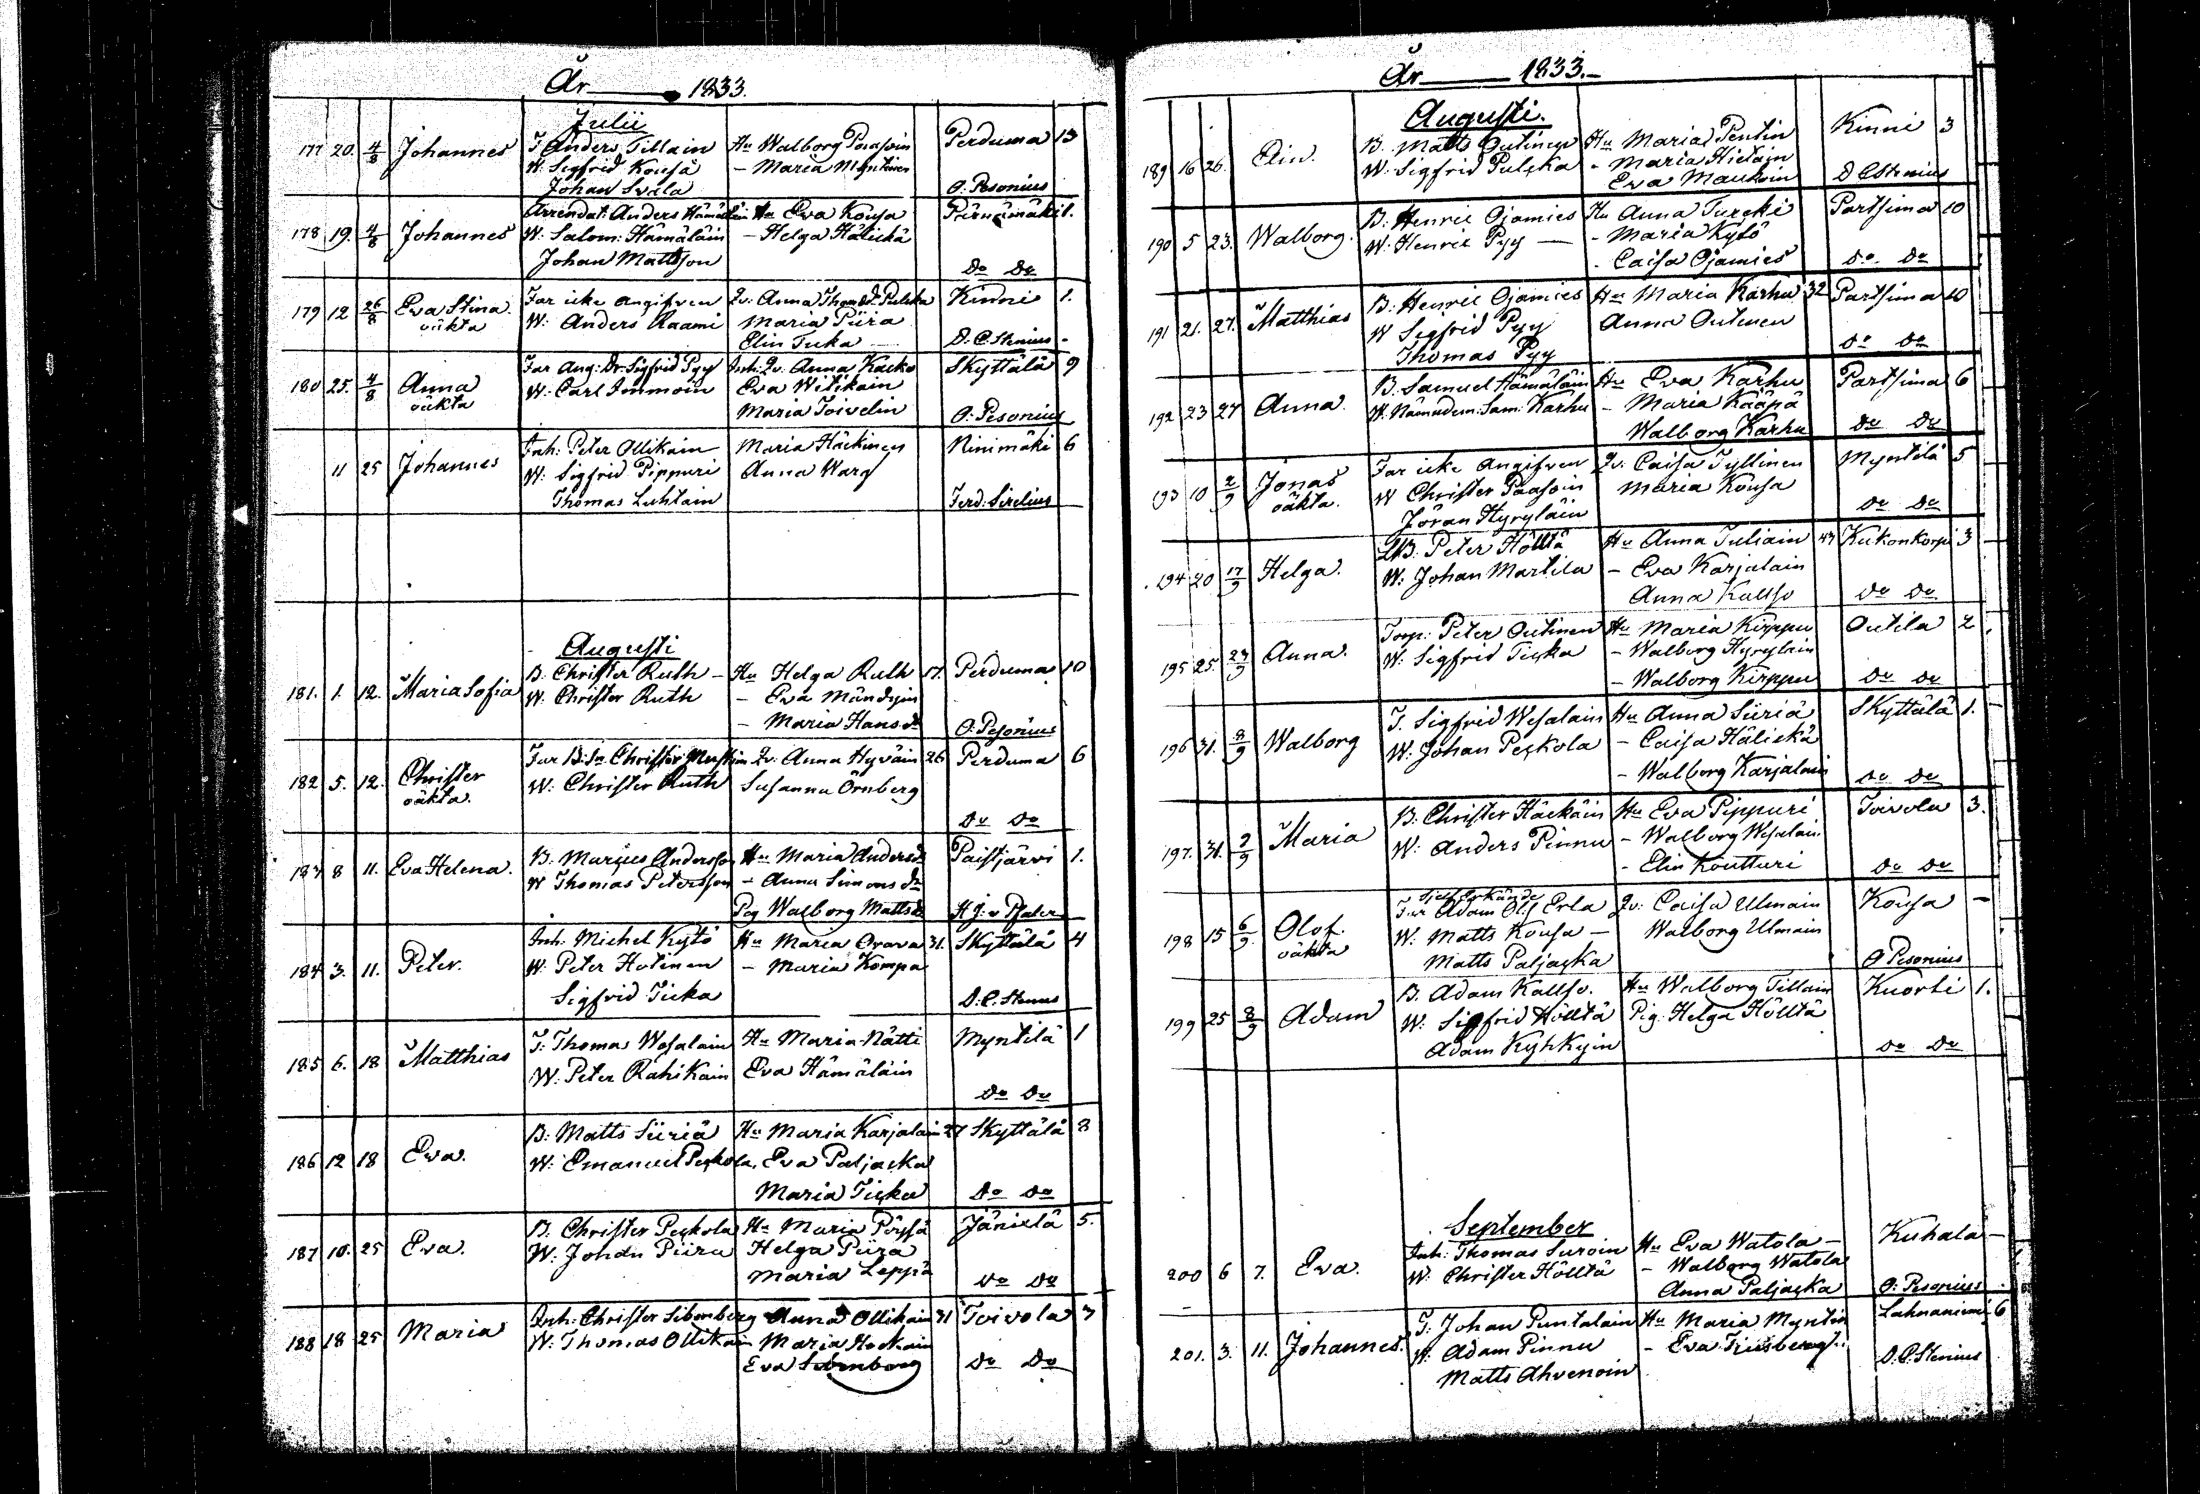 År 1833.
Julii
177 20. 4/8 Johannes T Anders Tillain Hu Walborg Paasoin Perduma 13
W. Sigfrid Kousa - Maria Myntinen
Johan Svala O. Pesonius
178 19. 4/8 Johannes Arrendat: Anders Hämäläin Hu Eva Kousa Pärnämäki 1.
W. Salom: Hämäläin - Helga Hälickä
Johan Mattsson Do Do
179 12 26/8 Eva Stina Far icke angifven Qv: Anna Thomsdr Pulska Kinni 1.
oäkta W: Anders Raami Maria Piira
Elin Tuka D. C. Stenius
180 25. 4/8 Anna Far Ang: Dr: Sigfrid Pyy Inh: Qv. Anna Kacko Skyttälä 9
oäkta W. Carl Immoin Eva Witikain
Maria Toivelin O: Pesonius
11 25 Johannes Inh: Peter Ollikain Maria Häckinen Ninimäki 6
W: Sigfrid Pippuri Anna Warg
Thomas Luhtain Ferd: Sirelius
Augusti
181. 1. 12. Maria Sofia B. Christer Ruth - Hu Helga Ruth 17. Perduma 10
W. Christer Ruth - Eva Mändyin
- Maria Hansdr O: Pesonius
182 5. 12. Christer Far B: Sn Christer Mustin Qv. Anna Hyväin 26 Perduma 6
oäkta. W. Christer Ruth Susanna Örnberg
Do Do
183 8 11. Eva Helena. B. Marcus Andersson Hu Maria Andersdr Paistjärvi 1.
W Thomas Petersson - Anna Simonsdr
Pig Walborg Mattsdr H J: v Pfaler
184 3. 11. Peter. Inh. Michel Kytö Hu Maria Orava 31. Skyttälä 4
W. Peter Hotinen - Maria Kompa
Sigfrid Ticka D. C. Stenius
185 6. 18 Matthias T: Thomas Wesalain Hu Maria Nätti Myntilä 1
W. Peter Rahikain Eva Hämäläin
Do Do
186 12 18 Eva. B: Matts Siiriä Hu Maria Karjalain 27 Skyttälä 8
W: Emanuel Peskola, Eva Paljacka
Maria Ticka Do Do
187 10. 25 Eva. B. Christer Peskola Hu Maria Pöyhä Jänielä 5.
W. Johan Piira Helga Piira
Maria Leppä Do Do
188 18 25 Maria Inh: Christer Sibenberg Anna Ollikain 31 Toivola 3
W. Thomas Ollikain Maria Hockain
Eva Sibenberg Do Do
År 1833.
Augusti.
189 16 26. Elin. B. Matts Outinen Hu Maria Pentin Kinni 3
W. Sigfrid Pulska - Maria Hietain
Eva Maukoin D C Stenius
190 5 23. Walborg. B. Henric Ojamies Hu Anna Turcki Partsima 10
W. Henric Pyy - Maria Kytö
- Caisa Ojamies Do Do
191 21. 27. Matthias B. Henric Ojamies Hu Maria Karhu 32 Partsima 10
W Sigfrid Pyy Anna Outinen
Thomas Pyy Do Do
192 23 27 Anna. B. Samuel Hämäläin Hu Eva Karhu Partsima 6
W. Nämndem: Sam: Karhu - Maria Kääpä
Walborg Karhu Do Do
193 10 2/9 Jonas Far icke angifven Qv: Caisa Tyllinen Myntilä 5
oäkta. W Christer Paasoin Maria Kousa
Jöran Hyryläin Do Do
194 20 17/9 Helga. LB. Peter Hölltä Hu Anna Tuliain 43 Kukonkorpi 3
W: Johan Martila - Eva Karjalain
Anna Kallso Do Do
195 25. 23/9 Anna. Torp: Peter Outinen Hu Maria Kirppu Outila 2
W: Sigfrid Ticka - Walborg Hyryläin
- Walborg Kirppu Do Do
196 31. 8/9 Walborg T. Sigfrid Wesalain Hu Anna Siiriä Skyttälä 1.
W: Johan Peskola - Caisa Hälickä
- Walborg Karjalain Do Do
197. 31. 7/9 Maria B. Christer Häckäin Hu Eva Pippuri Toivola 3.
W: Anders Pinnu - Walborg Wesalain
- Elin Koutturi Do Do
198 15 6/9 Olof. Far Adam Olf Erla Qv: Caisa Ulmain Kousa -
oäkta W: Matts Kousa - Walborg Ulmain
Matts Paljacka O Pesonius
199 25 8/9 Adam B. Adam Kallso. Hu Walborg Tillain Kuorti 1.
W: Sigfrid Hölltä Pig: Helga Hölltä
Adam Kyhkyin Do Do
September
200 6 7. Eva. Inh: Thomas Suroin Hu Eva Watola - Kuhala -
W. Christer Hölltä - Walborg Watola
Anna Paljacka O: Pesonius
201. 3. 11. Johannes. T: Johan Puntalain Hu Maria Myntin Lahnaniemi 6
W: Adam Pinnu - Eva Friisberg
Matts Ahvenoin D. C. Stenius